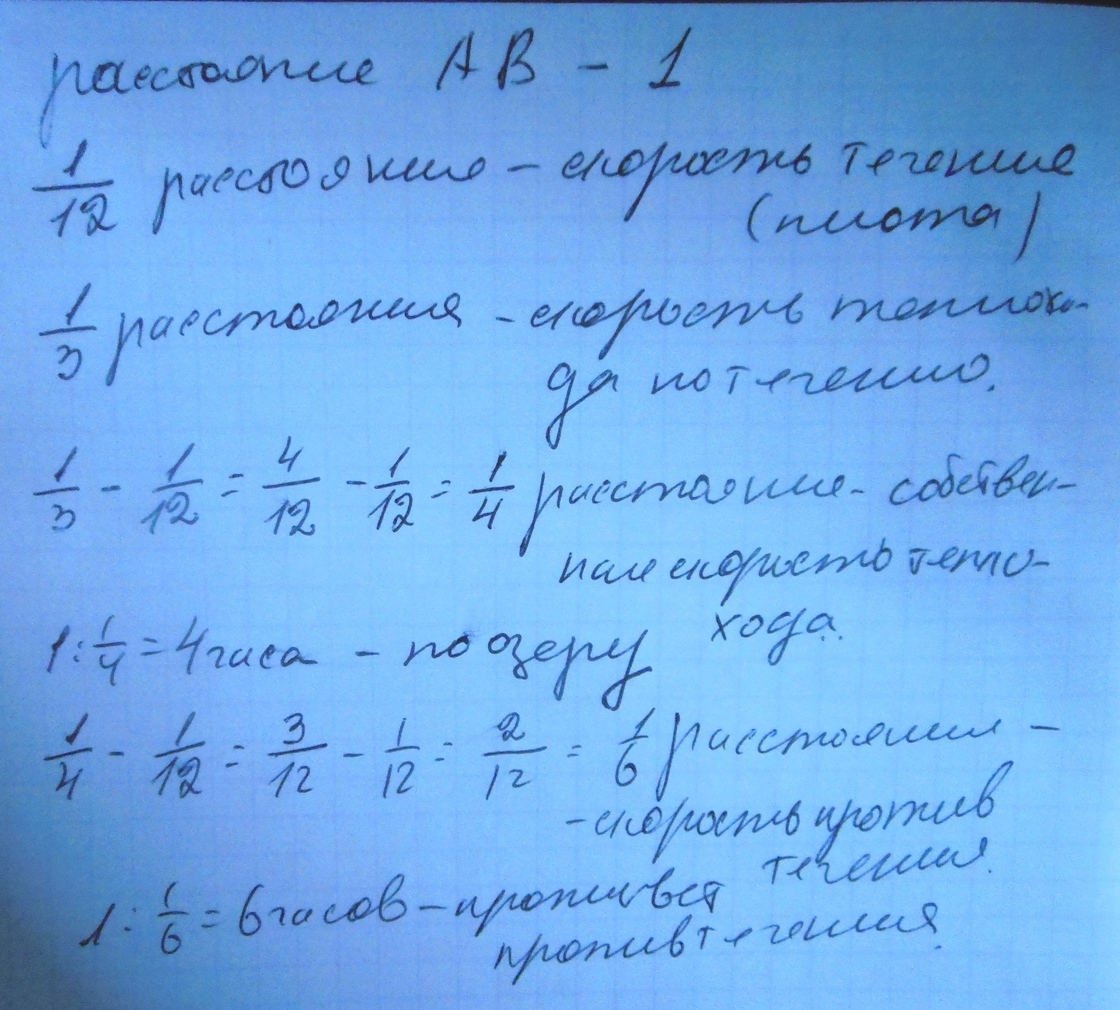 расстояние АВ - 1
1/12 расстояния - скорость течения
(плота)
1/3 расстояния - скорость теплохо-
да по течению.
1/3 - 1/12 = 4/12 - 1/12 = 1/4 расстояния - собствен-
ная скорость тепло-
хода.
1 : 1/4 = 4 часа - по озеру
1/4 - 1/12 = 3/12 - 1/12 = 2/12 = 1/6 расстояния -
- скорость против
течения.
1 : 1/6 = 6 часов - проплывёт
против течения.